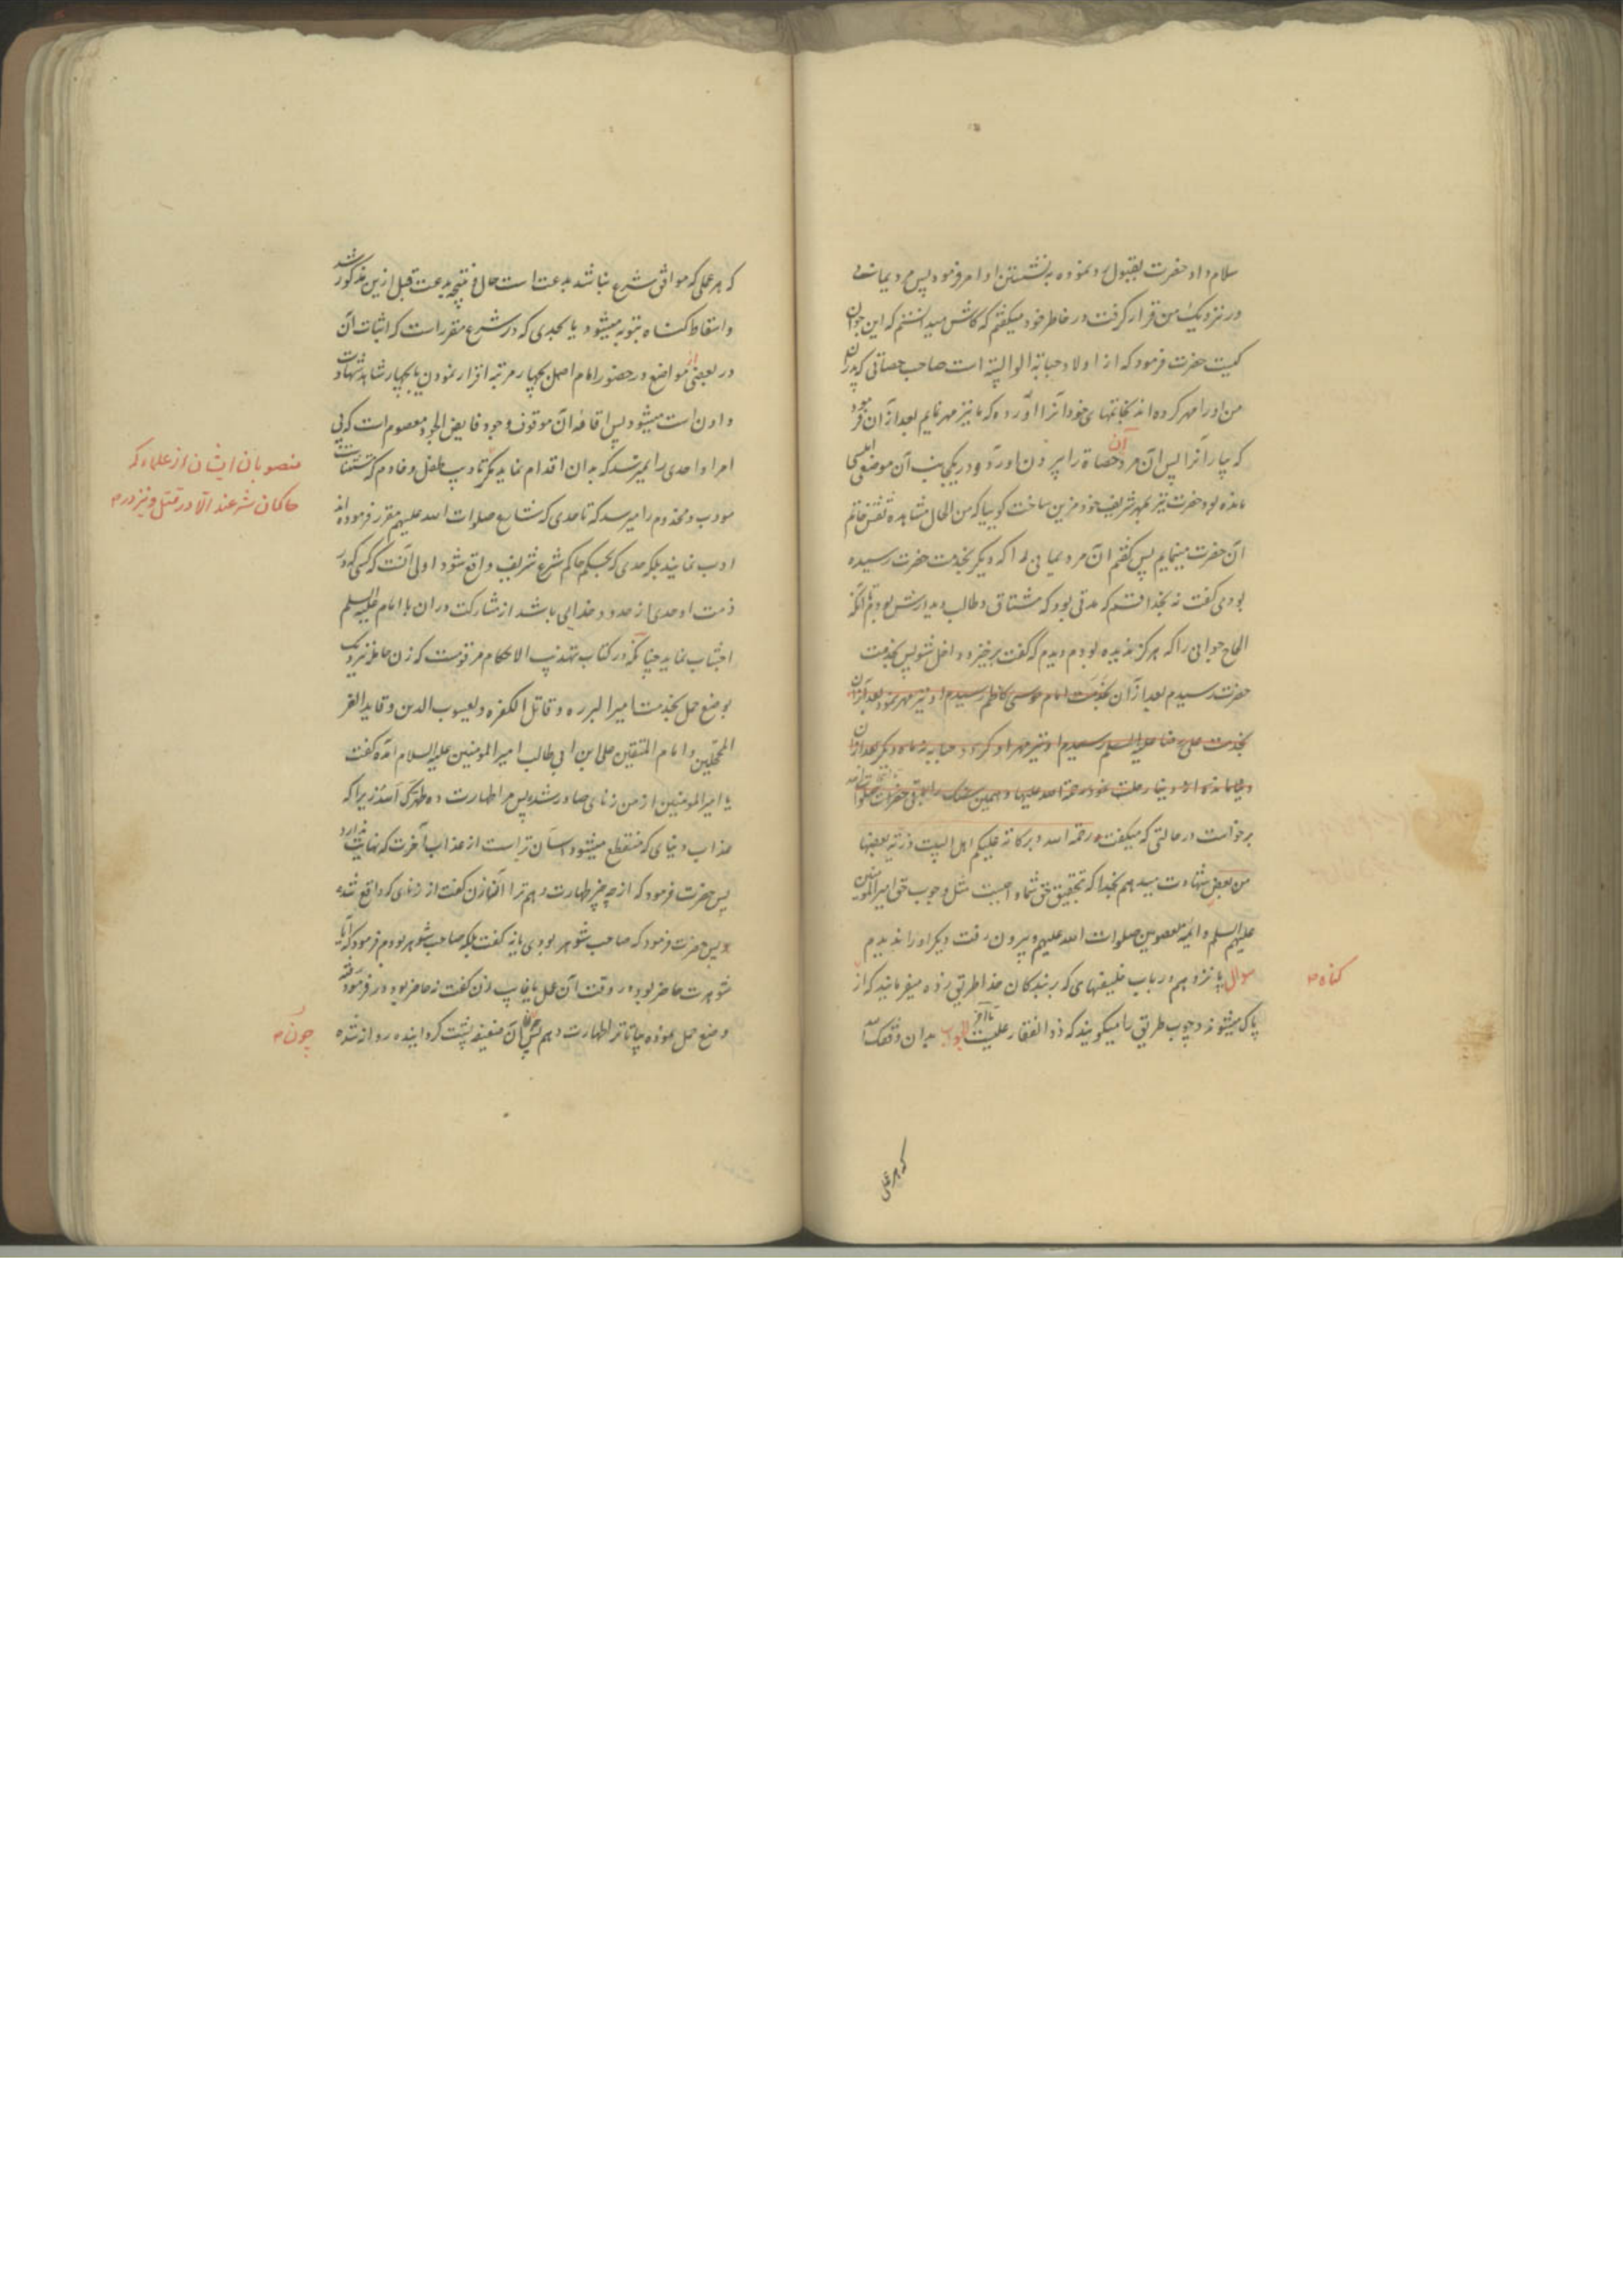 سلام داد حضرت بقبول رد نموده به نشستن او امر فرمود پس مرد یمانی
در نزدیک من قرار گرفت در خاطر خود میگفتم که کاش میدانستم که این جوان
کیست حضرت فرمود که از اولاد حبابة الوالبیّه است صاحب حصاتی که پدران
من او را مهر کرده اند بخاتمهای خود آنرا آورده که ما نیز مهر نمایم بعد از آن فرمود
که بیار آنرا پس آن مرد آن حصاة را بیرون آورد و در یکجانب آن موضع املسی
مانده بود حضرت نیز بمهر شریف خود مزین ساخت کوییا که من الحال مشاهده نقش خاتم
آن حضرت مینمایم پس گفتم آن مرد یمانی را که دیگر بخدمت حضرت رسیده
بودی گفت نه بخدا قسم که مدتی بود که مشتاق و طالب دیدارش بودم تا آنکه
الحال جوانی را که هرگز ندیده بودم دیدم که گفت برخیز و داخل شو پس بخدمت
حضرت رسیدم بعد از آن بخدمت امام موسی کاظم رسیدم او نیز مهر نمود بعد از آن
بخدمت علی رضا علیه السلم رسیدم او نیز مهر او کرد و حبابه نه ماه دیگر بعد از آن
از دنیا رحلت نمود رحمة الله علیها و همین سنک را باقی حضرات صلوات
برخواست در حالتی که میگفت رحمة الله و برکاته علیکم اهل البیت ذریة بعضها
من بعض شهادت میدهم بخدا که بتحقیق حق شما واجبست مثل وجوب حق امیر المومنین
علیهم السلم و ایمّهٔ معصومین صلوات الله علیهم و بیرون رفت دیگر او را ندیدم
سوال پانزدهم در باب خلیفهای که بر بندکان خدا طریق زده میفرمایند که از
کناه
پاک میشوند و چوب طریق را میگویند که ذو الفقار علیست تا آخر الجواب بدان وفقک الله
که هر عملی
که هر عملی که موافق شرع نباشد بدعت است حال و نتیجه بدعت قبل ازین مذکور شد
و اسقاط کناه بتوبه میشود یا بحدی که در شرع مقرر است که اثبات آن
در بعضی از مواضع در حضور امام اصل بچهار مرتبه اقرار نمودن یا بچهار شاهد شهادت
دادن است میشود پس اقامهٔ آن موقوف وجود فایض الجود معصوم است که بی
امر او احدی را نمیرسد که بدان اقدام نماید مکر تادیب طفل و خادم که
منصوبان ایشان از علما که
حاکمان شرعند الا در قتل و نیز در
مودب و مخدوم را میرسد که تا حدی که شارع صلوات الله علیهم مقرر فرموده اند
ادب نمایند بلکه حدی که بحکم حاکم شرع شریف واقع شود اولی آنست که کسی که در
ذمت او حدی از حدود خدایی باشد از مشارکت در آن با امام علیه السلم
اجتناب نماید چنانکه در کتاب تهذیب الاحکام مرقومست که زن حامله نزدیک
بوضع حمل بخدمت امیر البرره و قاتل الکفره و یعسوب الدین و قاید الغر
المحجلین و امام المتقین علی ابن ابی طالب امیر المومنین علیه السلام آمده گفت
یا امیر المومنین از من زنای صادر شده پس مرا طهارت ده طهّرک الله زیرا که
عذاب دنیای که منقطع میشود آسان تر است از عذاب آخرت که نهایت ندارد
پس حضرت فرمود که از چه چیز طهارت دهم ترا آن زن گفت از زنای که واقع شده
پس حضرت فرمود که صاحب شوهر بودی یا نه گفت بلکه صاحب شوهر بودم فرمود که آیا
شوهرت حاضر بود در وقت آن عمل یا غایب زن گفت نه حاضر بود فرمود رفته
وضع حمل نموده بیا تا ترا طهارت دهم پس چون آن ضعیفه پشت کردانیده روانه شده
چون